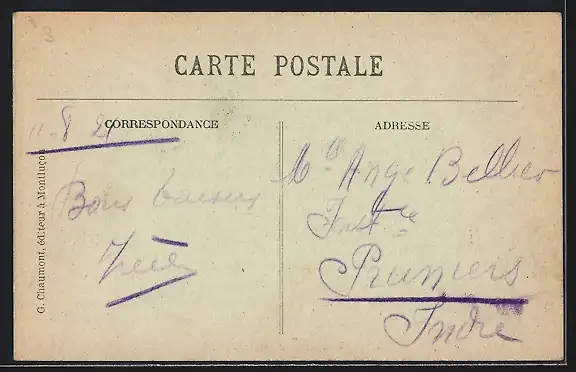 3
CARTE POSTALE
CORRESPONDANCE
ADRESSE
11-8 21
Bons baisers
G. Chaumont, éditeur à Montluçon
Ange Bellier
Pruniers
Indre